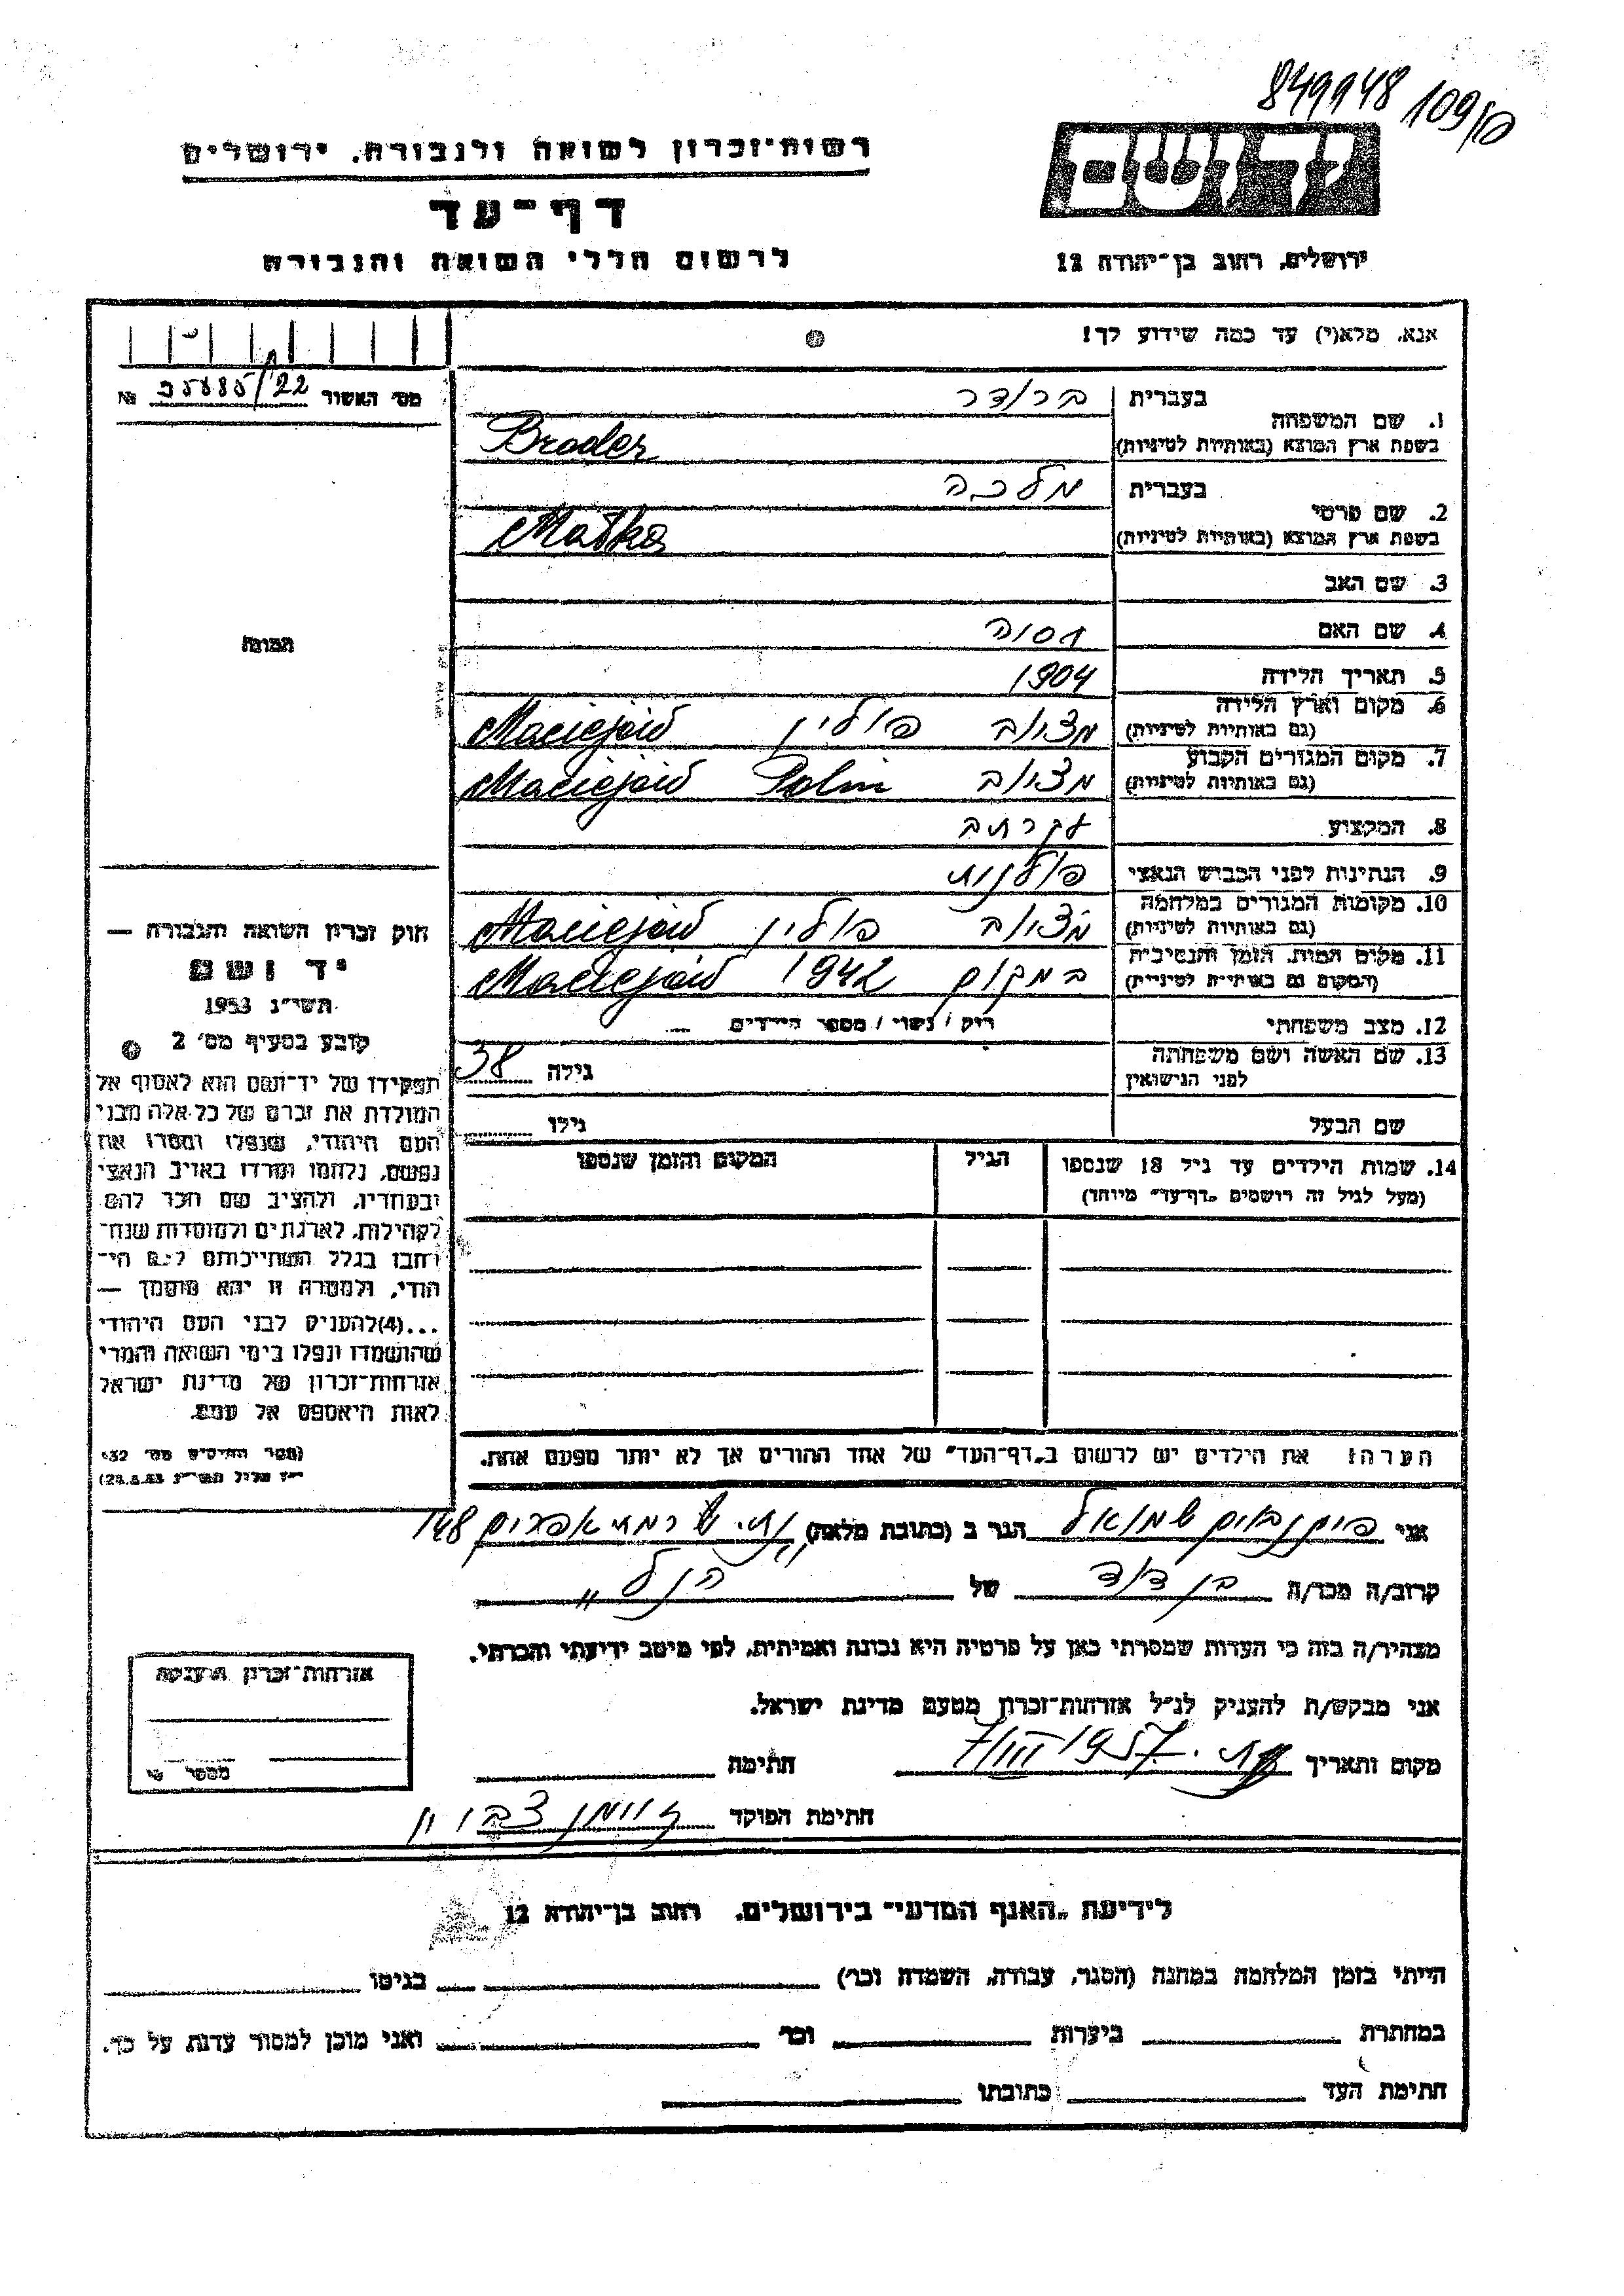 849948 109/10
יד ושם
ירושלים, רחוב בן־יהודה 12
רשות־זכרון לשואה ולגבורה, ירושלים
דף־עד
לרשום חללי השואה והגבורה
אנא, מלא(י) עד כמה שידוע לך!
מס׳ האשור 22/35885 №
1. שם המשפחה
בעברית ברודר
בשפת ארץ המוצא (באותיות לטיניות) Broder
2. שם פרטי
בעברית מלכה
בשפת ארץ המוצא (באותיות לטיניות) Malka
3. שם האב
4. שם האם
5. תאריך הלידה 1904
6. מקום וארץ הלידה
(גם באותיות לטיניות) פולין Maciejów
7. מקום המגורים הקבוע
(גם באותיות לטיניות) Polin Maciejów
8. המקצוע עקרת ב
9. הנתינות לפני הכבוש הנאצי פולנית
10. מקומות המגורים במלחמה
(גם באותיות לטיניות) פולין Maciejów
11. מקום המות, הזמן והנסיבות
(המקום גם באותיות לטיניות) במקום 1942 Maciejów
12. מצב משפחתי רווק / נשוי / מספר הילדים
13. שם האשה ושם משפחתה
לפני הנישואין
גילה 38
שם הבעל גילו
14. שמות הילדים עד גיל 18 שנספו
(מעל לגיל זה רושמים „דף־עד” מיוחד)
הגיל
המקום והזמן שנספו
הערה: את הילדים יש לרשום ב„דף־העד” של אחד ההורים אך לא יותר מפעם אחת.
התמונה
חוק זכרון השואה והגבורה —
יד ושם
תשי״ג 1953
קובע בסעיף מס׳ 2
תפקידו של יד־ושם הוא לאסוף אל
המולדת את זכרם של כל אלה מבני
העם היהודי, שנפלו ומסרו את
נפשם, נלחמו ומרדו באויב הנאצי
ובעוזריו, ולהציב שם וזכר להם
לקהילות, לארגונים ולמוסדות שנח־
רבו בגלל השתייכותם לעם הי־
הודי, ולמטרה זו יהא מוסמך —
...(4)להעניק לבני העם היהודי
שהושמדו ונפלו בימי השואה והמרי
אזרחות־זכרון של מדינת ישראל
לאות היאספם אל עמם.
(ספר החוקים מס׳ 132
אני שמואל הגר ב (כתובת מלאה) רמת אפרים 148
קרוב/ה מכר/ה בן דוד של הנ״ל
מצהיר/ה בזה כי העדות שמסרתי כאן על פרטיה היא נכונה ואמיתית, לפי מיטב ידיעתי והכרתי.
אני מבקש/ת להעניק לנ״ל אזרחות־זכרון מטעם מדינת ישראל.
מקום ותאריך 7/VIII 1957 חתימה
חתימת הפוקד
אזרחות־זכרון הוענקה
מספר
לידיעת „האגף המדעי” בירושלים, רחוב בן־יהודה 12
הייתי בזמן המלחמה במחנה (הסגר, עבודה, השמדה וכו׳) בגיטו
במחתרת ביערות וכו׳ ואני מוכן למסור עדות על כך.
חתימת העד כתובתו